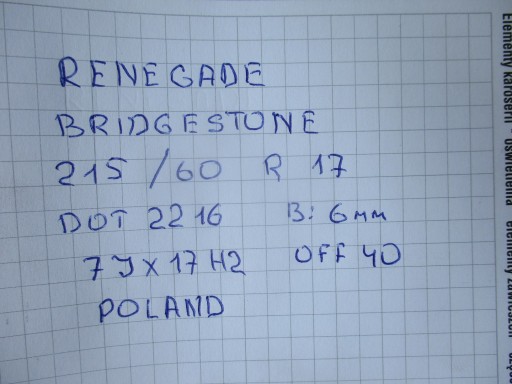 RENEGADE
BRIDGESTONE
215/60 R 17
DOT 2216 B: 6mm
7JX17H2 OFF 40
POLAND
Elementy karoserii
oświetlenia
elementy zawieszeń